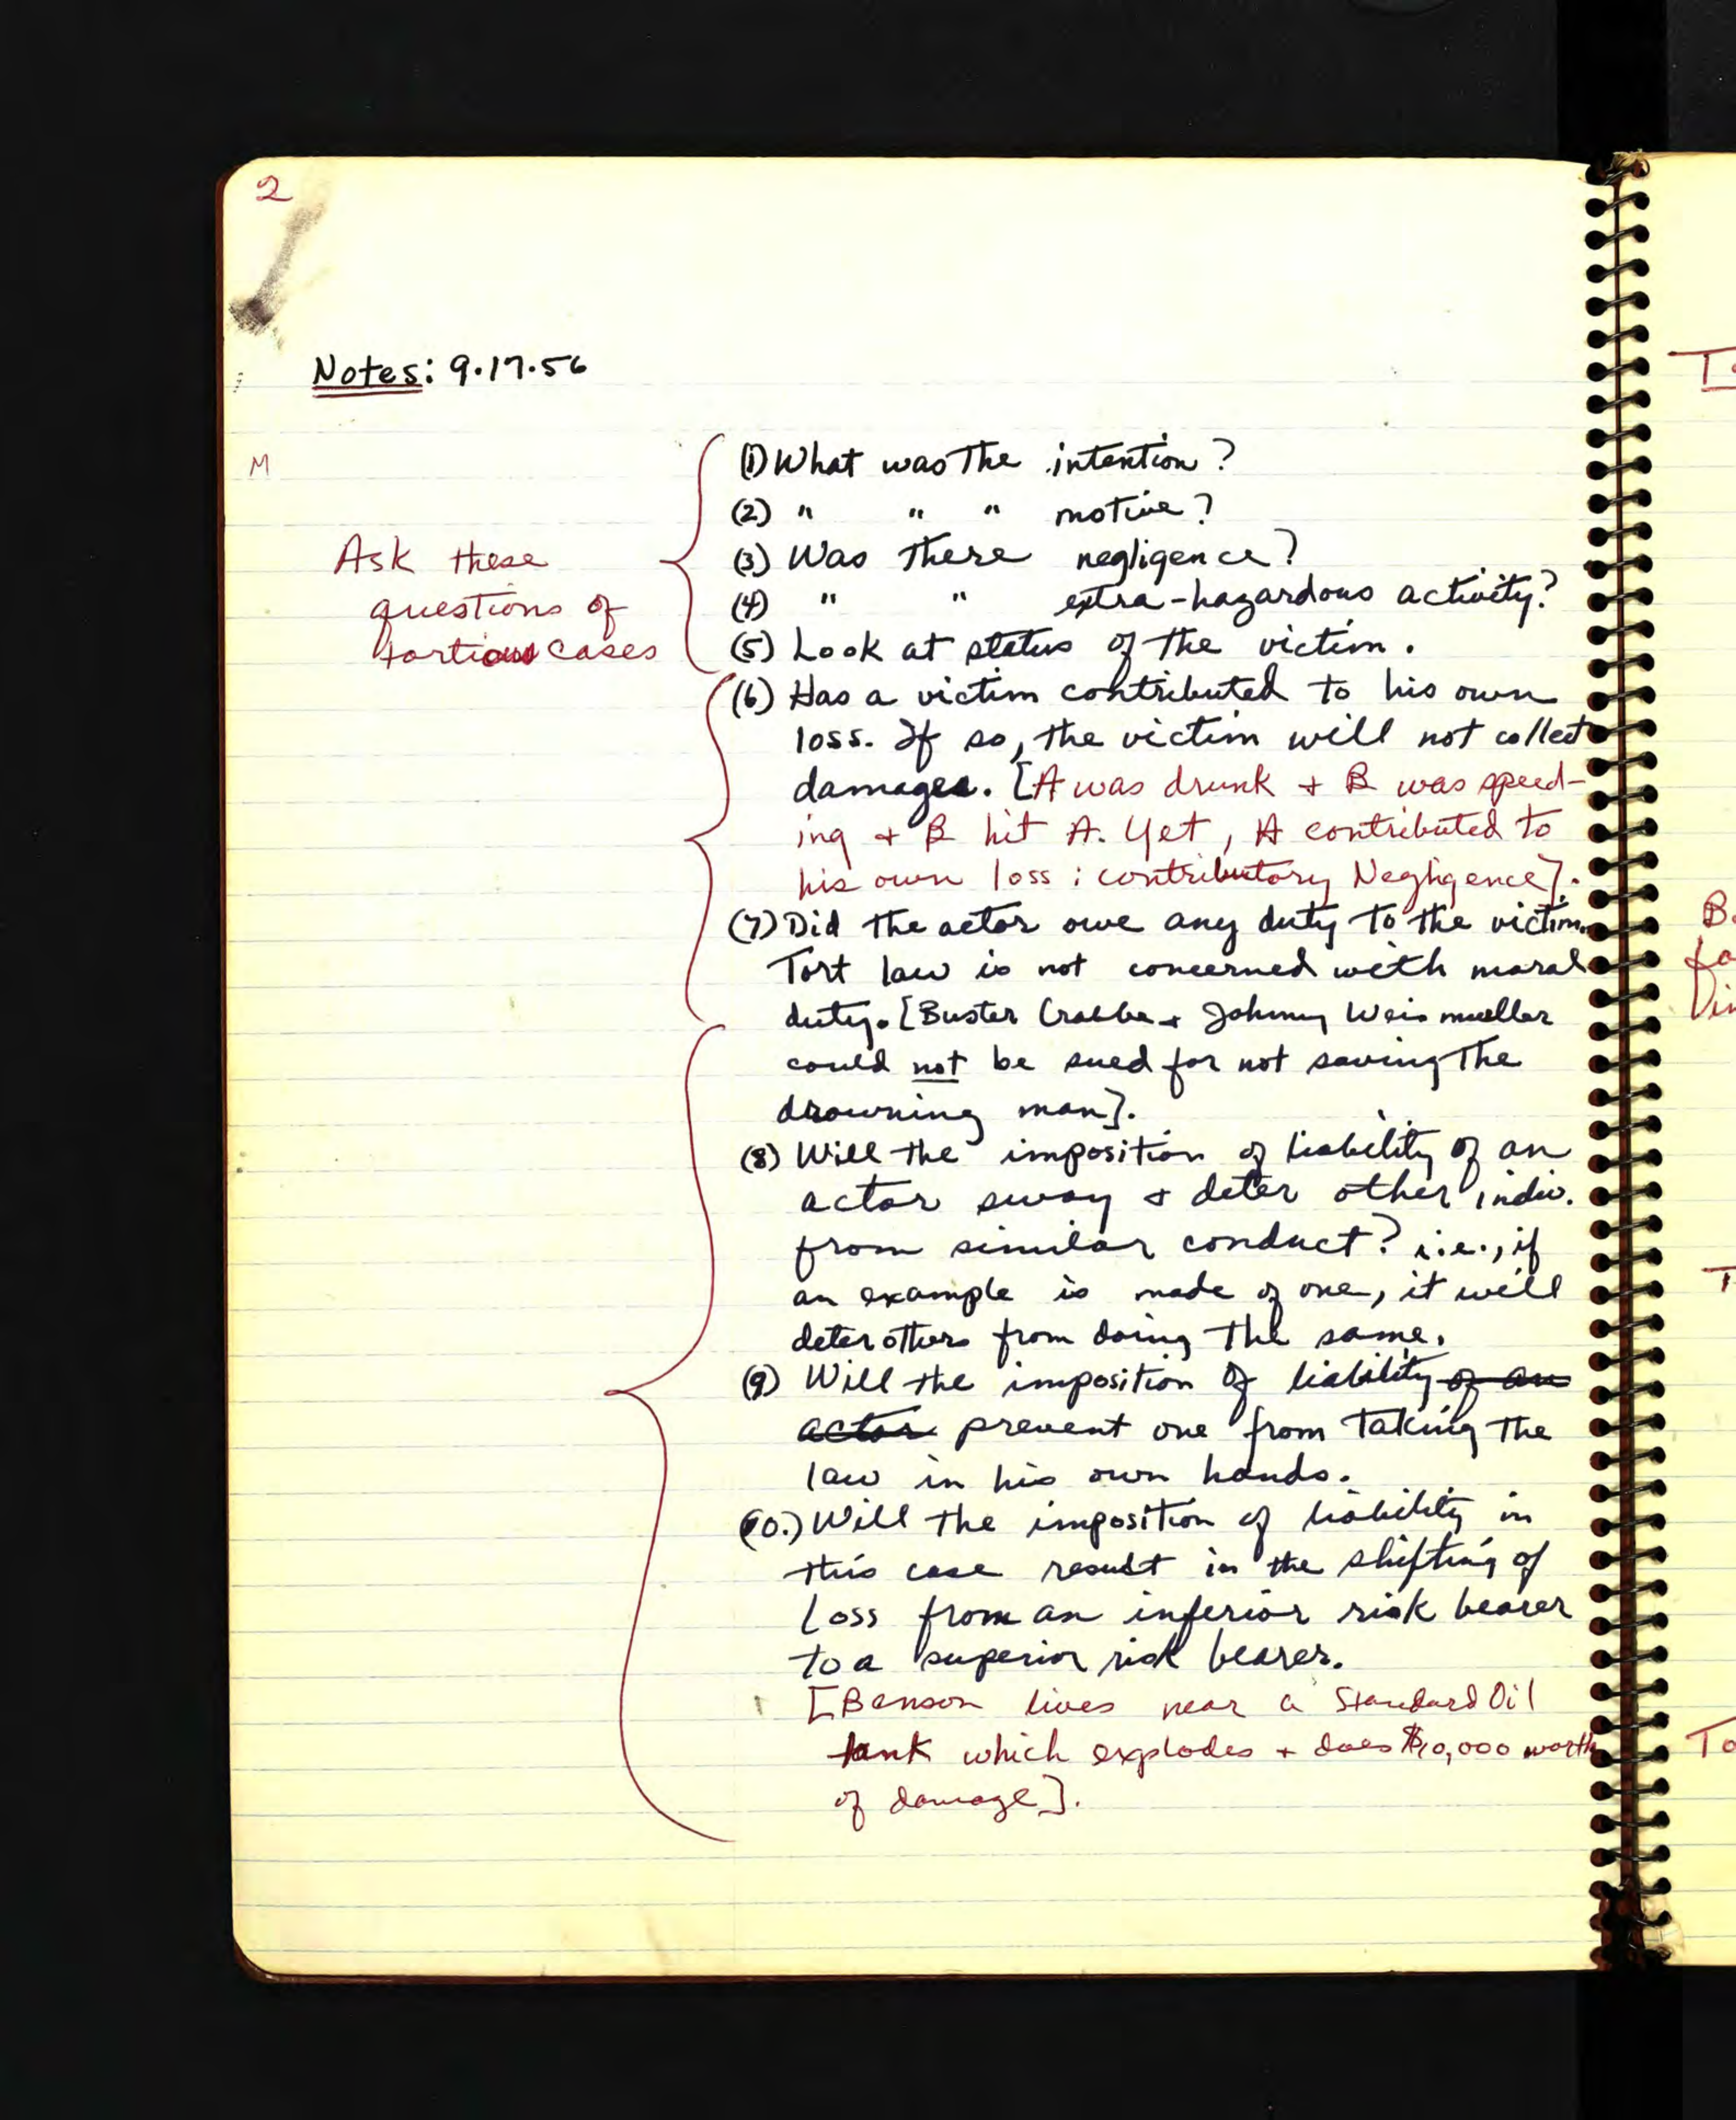 2
Notes: 9.17.56
M
Ask these
questions of
tortious cases
(1) What was the intention?
(2) " " " motive?
(3) Was there negligence?
(4) " " extra-hazardous activity?
(5) Look at status of the victim.
(6) Has a victim contributed to his own
loss. If so, the victim will not collect
damages. [A was drunk + B was speed-
ing + B hit A. Yet, A contributed to
his own loss : contributory Negligence].
(7) Did the actor owe any duty to the victim.
Tort law is not concerned with moral
duty. [Buster Crabbe + Johnny Weismueller
could not be sued for not saving the
drowning man].
(8) Will the imposition of liability of an
actor sway + deter other indiv.
from similar conduct? i.e., if
an example is made of one, it will
deter others from doing the same.
(9) Will the imposition of liability of an
actor prevent one from taking the
law in his own hands.
(10.) Will the imposition of liability in
this case result in the shifting of
Loss from an inferior risk bearer
to a superior risk bearer.
[Benson lives near a Standard Oil
tank which explodes + does $10,000 worth
of damage].